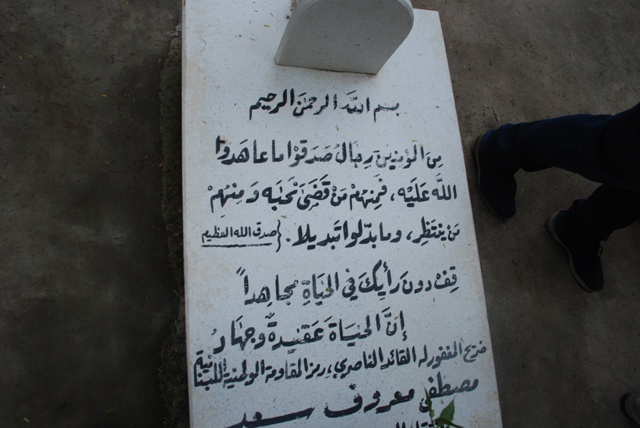 بسم الله الرحمن الرحيم
من المؤمنين رجال صدقوا ما عاهدوا
الله عليه، فمنهم من قضى نحبه ومنهم
من ينتظر، وما بدلوا تبديلا. {صدق الله العظيم
قف دون رأيك في الحياة مجاهداً
إنَّ الحياة عقيدة وجهاد
ضريح المغفور له القائد الناصري، رمز المقاومة الوطنية اللبنانية
مصطفى معروف سعد